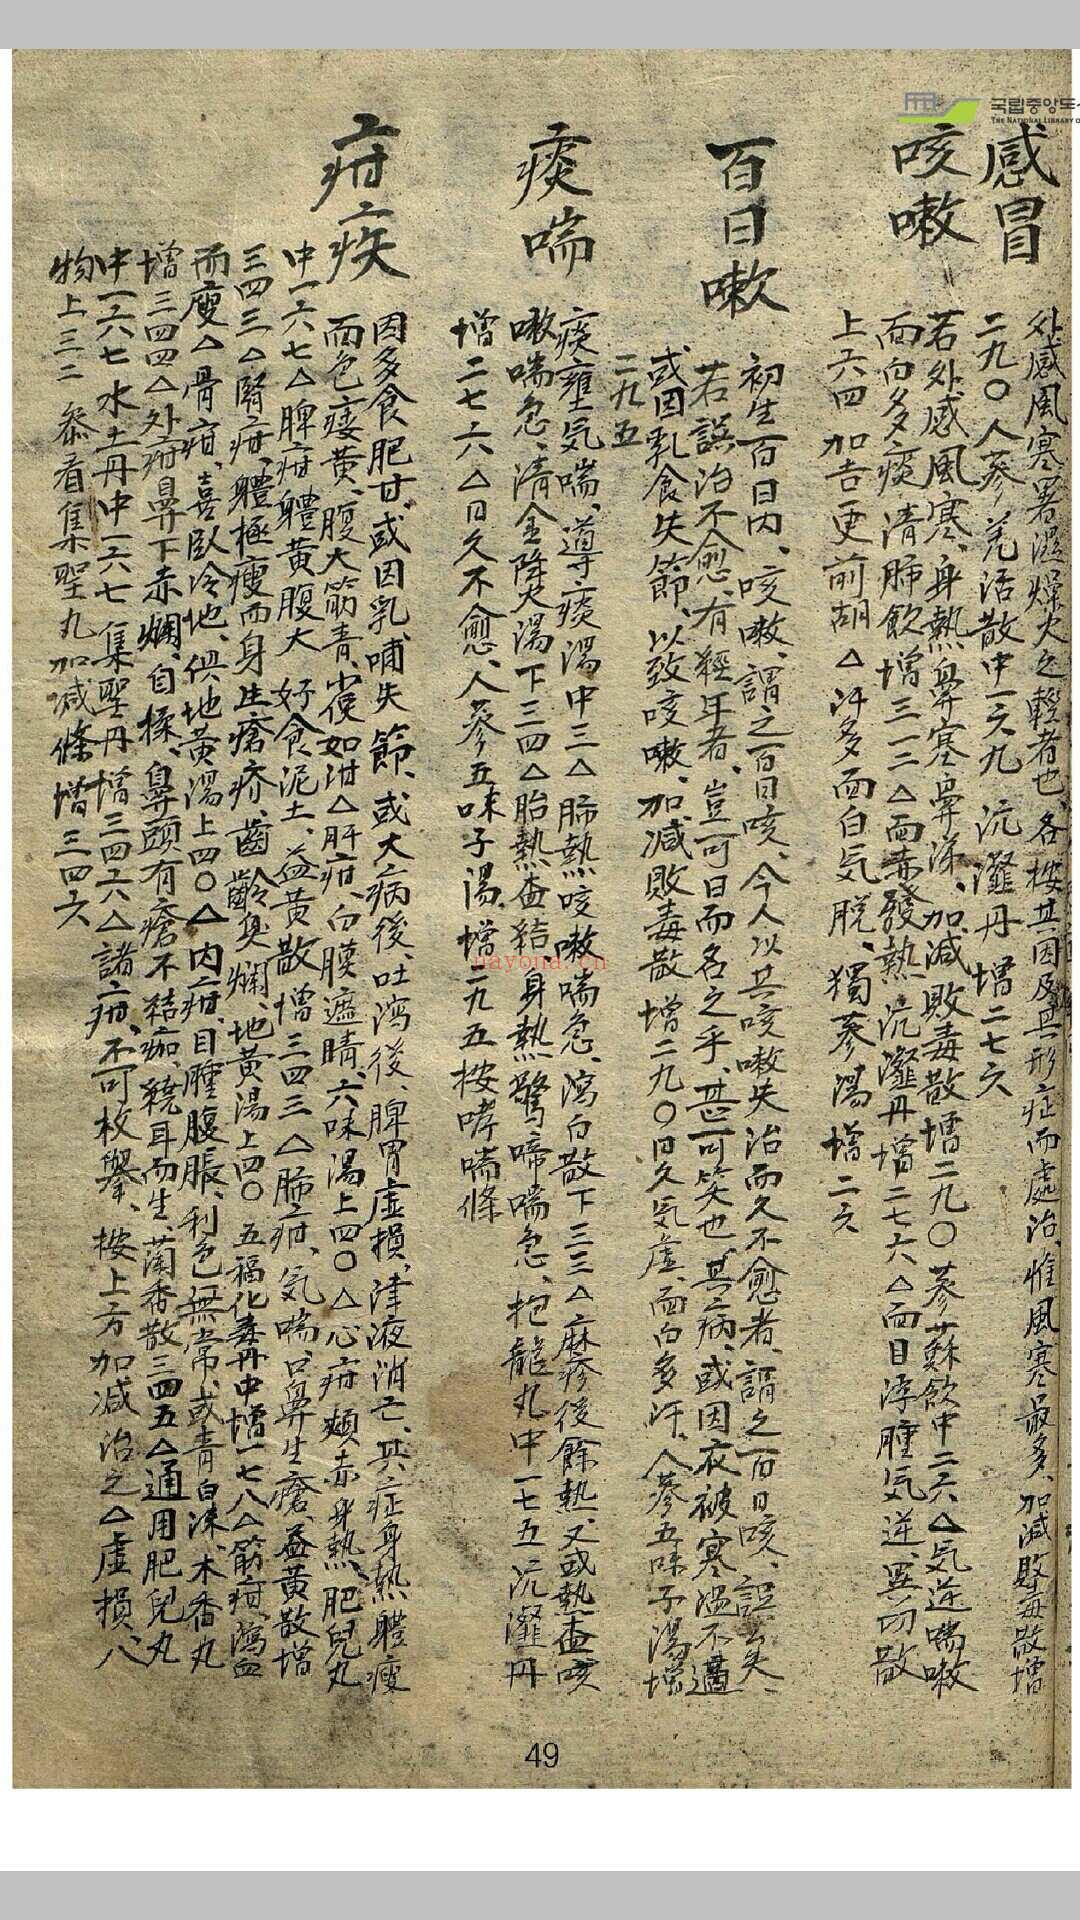 국립중앙도서
THE NATIONAL LIBRARY OF
感冒
外感風寒暑濕燥火之輕者也、各按其因及其形症而處治、惟風寒最多、加減敗毒散增
二九〇人蔘羌活散中一六九 沆瀣丹 增二七六
咳嗽
若外感風寒、身熱鼻塞鼻涕、加減敗毒散增二九〇蔘蘇飲中二六△気逆喘嗽
面白多痰清肺飲增三一二△面赤發熱沆瀣丹增二七六△面目浮腫気逆、異功散
上六四加吉更前胡△汗多面白気脫、獨蔘湯增二六
百日嗽
初生百日內、咳嗽、謂之百日咳、今人以其咳嗽失治而久不愈者、謂之百日咳、誤矣、
若誤治不愈、有經年者、豈可日而名之乎、甚可笑也、其病、或因衣被寒溫不適
或因乳食失節、以致咳嗽、加減敗毒散增二九〇日久気虛、面白多汗、人蔘五味子湯增
二九五
痰喘
痰壅気喘、導痰湯中三△肺熱咳嗽喘急、瀉白散下三三△麻疹後餘熱、又或熱盛咳
嗽喘急、清金降火湯下三四△胎熱盛結身熱驚啼喘急、抱龍丸中一七五沆瀣丹
增二七六△日久不愈、人蔘五味子湯、增二九五按哮喘條
疳疾
因多食肥甘、或因乳哺失節、或大病後、吐瀉後、脾胃虛損、津液消亡、其症身熱體瘦
面色痿黃、腹大筋青、便如泔△肝疳、白膜遮睛、六味湯上四〇△心疳頰赤身熱、肥兒丸
中一六七△脾疳體黃腹大 好食泥土、益黃散增三四三△肺疳、気喘、口鼻生瘡、益黃散增
三四三△腎疳、體極瘦而身生瘡疥、齒齦臭爛、地黃湯上四〇 五福化毒丹中增一七八△筋疳、瀉血
而瘦△骨疳、喜臥冷地、俱地黃湯上四〇△內疳、目腫腹脹、利色無常、或青白沫、木香丸
增三四四△外疳鼻下赤爛、自揉、鼻頭有瘡不結痂、繞耳而生、蘭香散三四五△通用肥兒丸
中一六七水土丹中一六七集聖丹增三四六△諸疳、不可枚擧、按上方加减治之△虛損、八
物上三二 叅看集聖丸加减條增三四六
nayona.cn
49